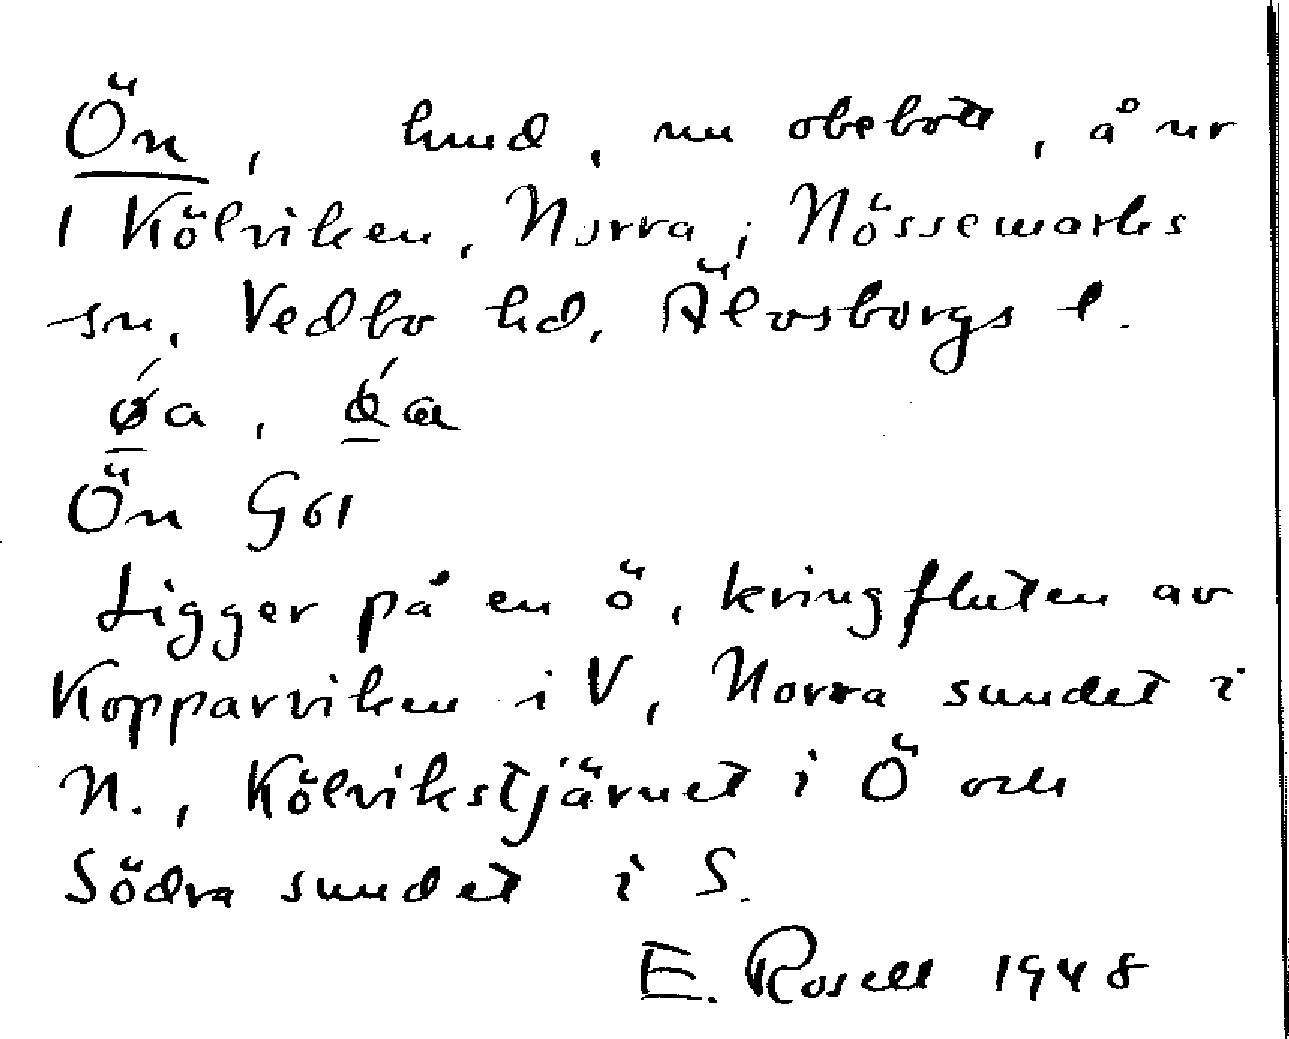 Ön, hmd, nu obebott, å nr
1 Kölviken, Norra, i Nössemarks
sn, Vedbo hd, Älvsborgs l.
Ön G61
Ligger på en ö, kringfluten av
Kopparviken i V, Norra sundet i
N., Kölvikstjärnet i Ö och
Södra sundet i S.
E. Rosell 1948